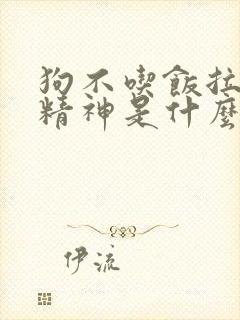 狗不喫飯拉
精神是什麼
伊流